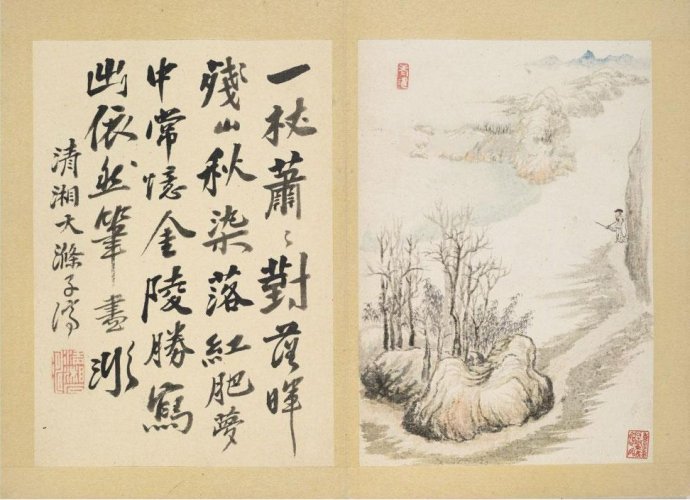 一杖蕭〻對落暉
殘山秋染落紅肥夢
中常憶金陵勝寫
出依然筆盡
清湘大滌子濟